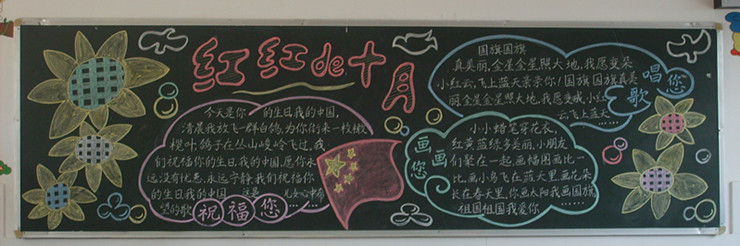 红红de十月
今天是你 的生日我的中国,
清晨我放飞一群白鸽,为你衔来一枚橄
榄叶,鸽子在丛山峻岭飞过,我
们祝福你的生日我的中国,愿你永
远没有忧患,永远宁静,我们祝福你
的生日我的中国 这是 儿女心中希
望的歌
祝福您……
国旗国旗
真美丽,金星金星照大地,我愿变朵
小红云,飞上蓝天亲亲你!国旗国旗真美
丽,金星金星照大地,我愿变成小红
云,飞上蓝天……
唱歌您
小小蜡笔穿花衣,
红黄蓝绿多美丽,小朋友
们聚在一起,画幅图画比一
比,画小鸟飞在蓝天里,画花朵
长在春天里,你画太阳我画国旗
祖国祖国我爱你……
画画您